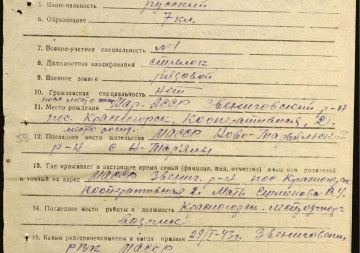 5. Национальность русский
6. Образование 7 кл.
7. Военно-учетная специальность №1
8. Должностная квалификация стрелок
9. Военное звание рядовой
10. Гражданская специальность нет
11. Место рождения Мар. АССР Звениговский р-н
пос. Красногорск, Кооперативная, 2.
12. Последнее место жительства МАССР Ново-Торъяльский
р-н с Н-Торъялы
13. Где проживает в настоящее время семья (фамилия, имя, отчество) жены или родителей
и точный ее адрес МАССР Звениг. р-н. пос Красногор.
Кооперативная 2. Мать Семенова
14. Последнее место работы и должность Красногор.
возчик
15. Каким райвоенкоматом и когда призван 29/I-43г. Звениговск.
РВК МАССР